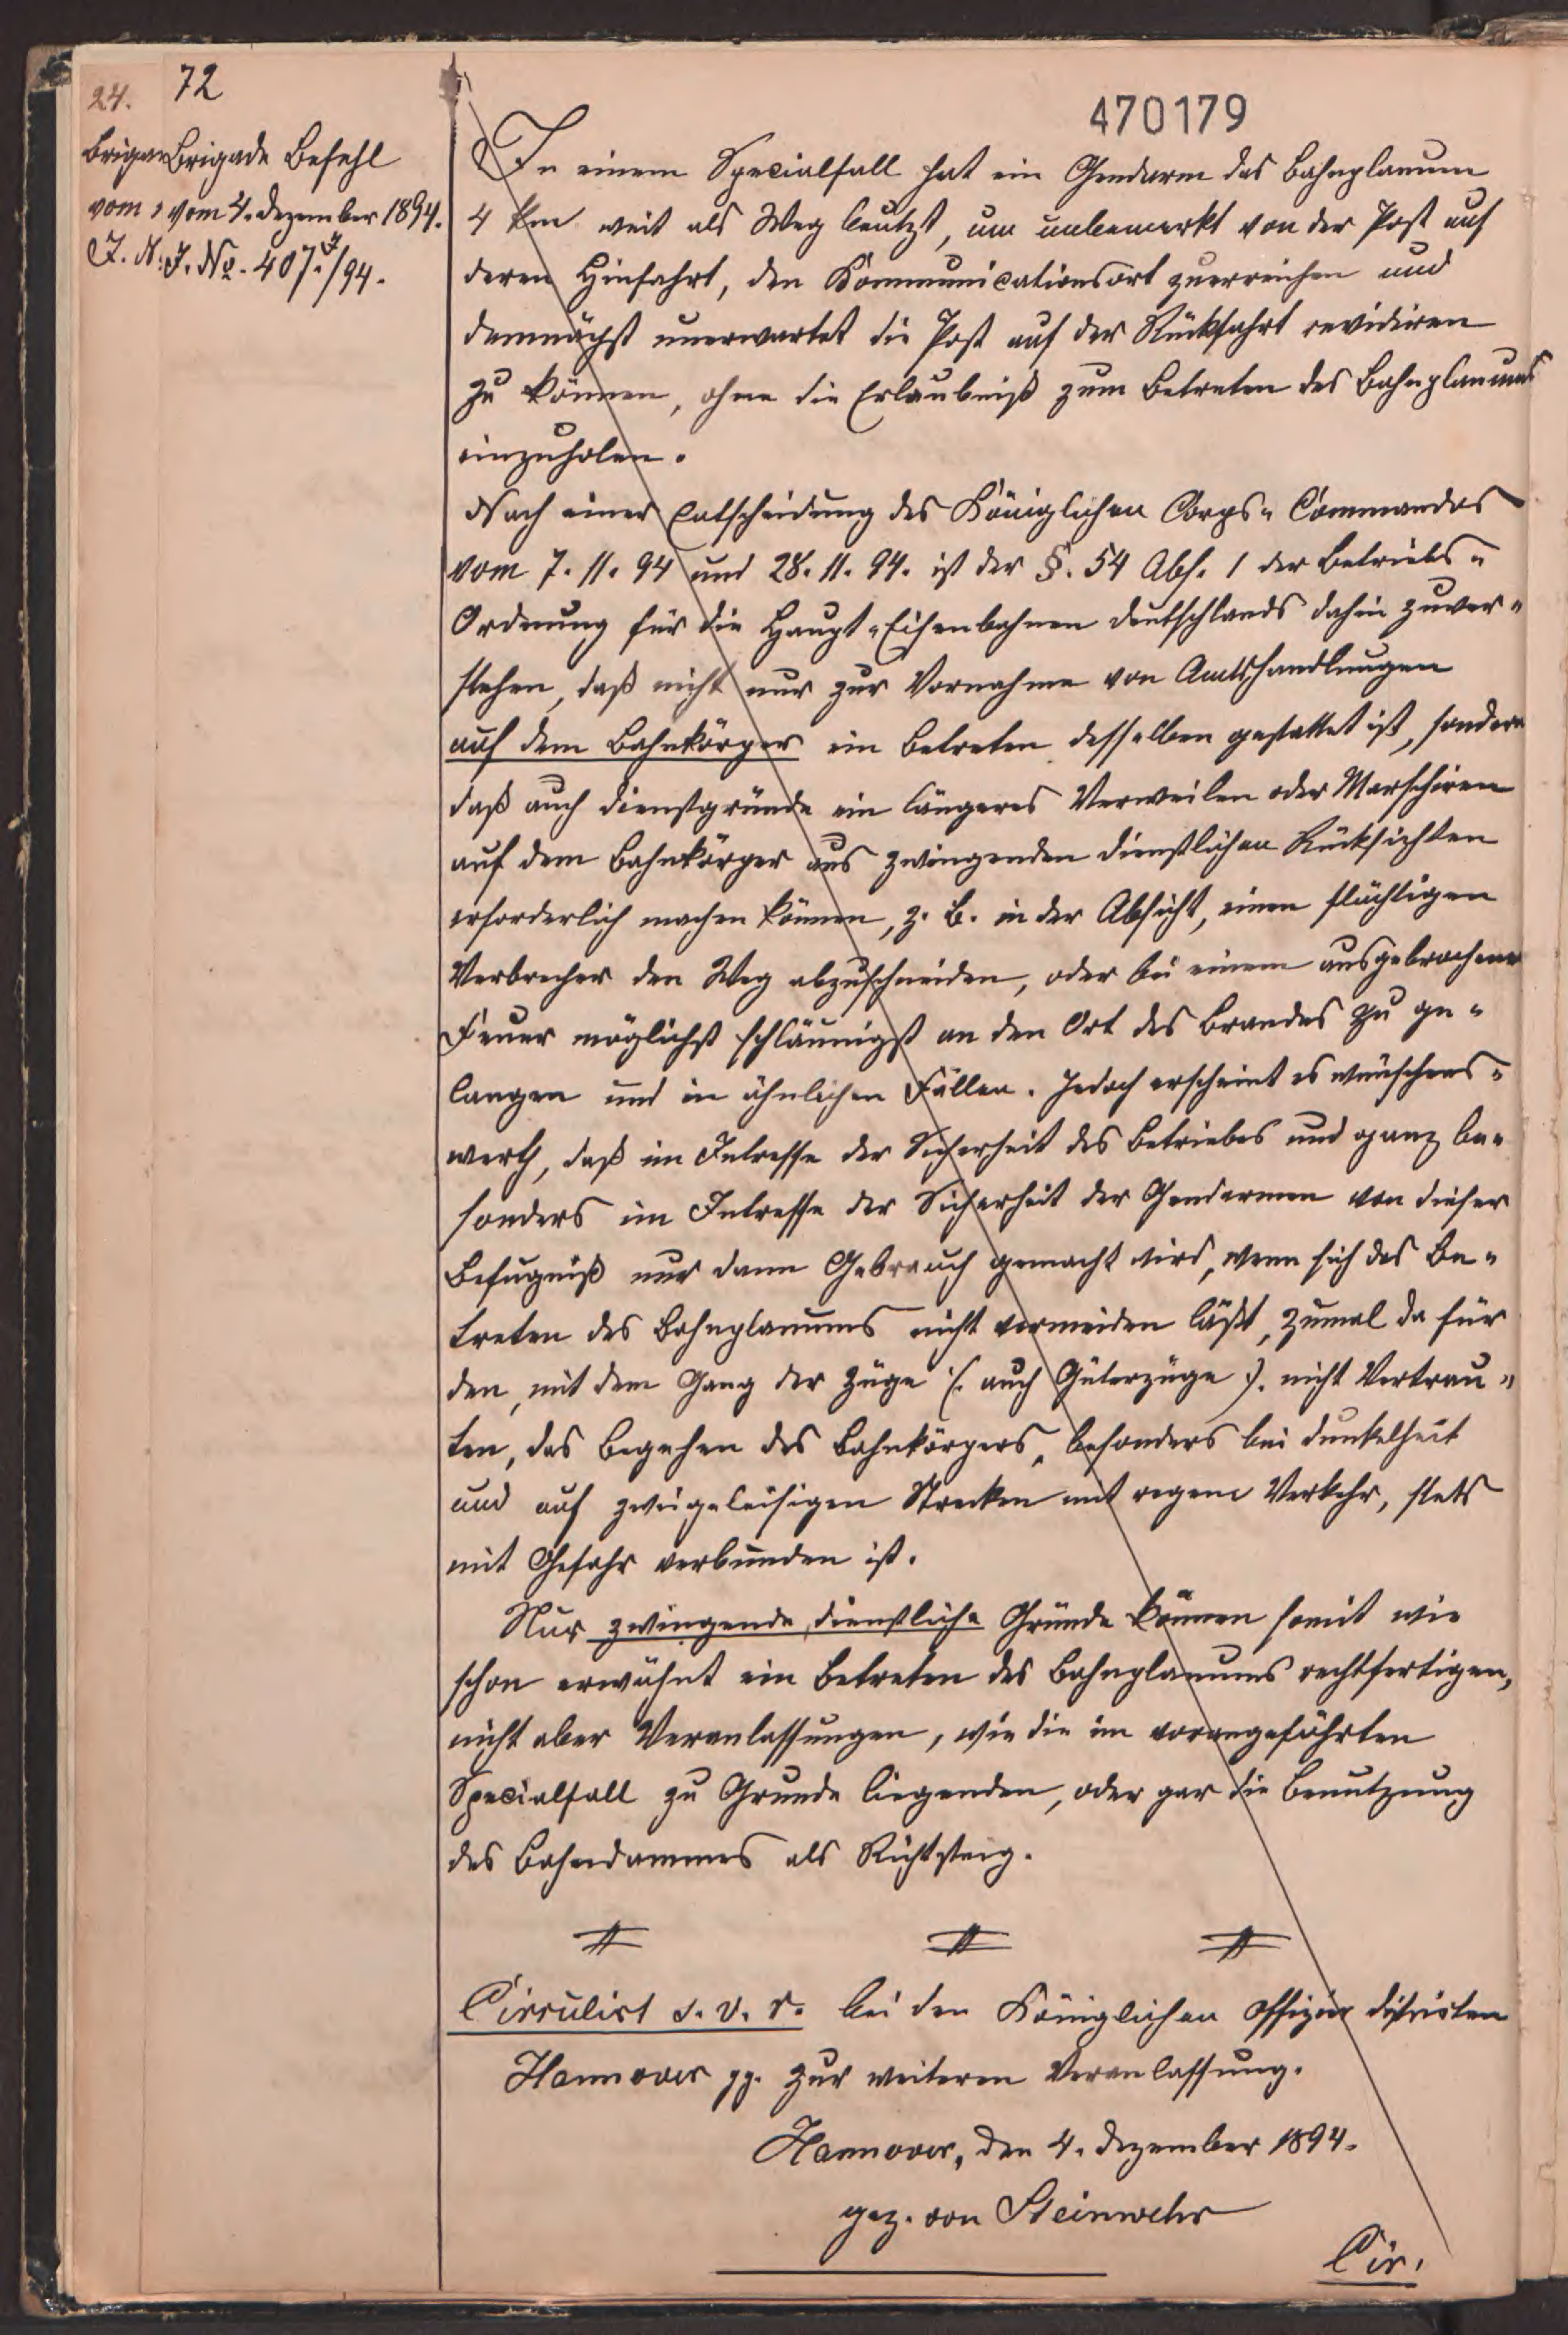 24. 72
470179
Brigade Befehl
vom 4. Dezember 1894.
J. No. 407.J/94.
In einem Specialfall hat ein Gendarm das Bahnplanum
4 km weit als Weg benutzt, um unbemerkt von der Post auf
deren Hinfahrt, den Kommunicationsort zuerreichen und
demnächst unerwartet die Post auf der Rückfahrt revidiren
zu können, ohne die Erlaubniß zum Betreten des Bahnplanums
einzuholen.
Nach einer Entscheidung des Königlichen Corps-Commandos
vom 7.11.94 und 28.11.94. ist der §. 54 Abs. 1 der Betriebs-
Ordnung für die Haupt-Eisenbahnen Deutschlands dahin zuver-
stehen, daß nicht nur zur Vornahme von Amtshandlungen
auf dem Bahnkörper ein Betreten desselben gestattet ist, sondern
daß auch Dienstgründe ein längeres Verweilen oder Marschiren
auf dem Bahnkörper aus zwingenden dienstlichen Rücksichten
erforderlich machen können, z. B. in der Absicht, einen flüchtigen
Verbrecher den Weg abzuschneiden, oder bei einem ausgebrochenen
Feuer möglichst schläunigst an den Ort des Brandes zu ge-
langen und in ähnlichen Fällen. Jedoch erscheint es wünschens-
werth, daß im Intresse der Sicherheit des Betriebes und ganz be-
sonders im Intresse der Sicherheit der Gendarmen von dieser
Befugniß nur dann Gebrauch gemacht wird, wenn sich das Be-
treten des Bahnplanums nicht vermeiden läßt, zumal da für
den, mit dem Gang der Züge (: auch Güterzüge :). nicht Vertrau-
ten, das Begehen des Bahnkörpers, besonders bei Dunkelheit
und auf zweigeleisigen Strecken mit regem Verkehr, stets
mit Gefahr verbunden ist.
Nur zwingende, dienstliche Gründe können somit wie
schon erwähnt ein Betreten des Bahnplanums rechtfertigen,
nicht aber Veranlassungen, wie die im vorangeführten
Specialfall zu Grunde liegenden, oder gar die Benutzung
des Bahndammes als Richtsteig.
Cirrulirt s. v. r. bei den Königlichen Offizier Distrikten
Hannover pp. zur weiteren Veranlassung.
Hannover, den 4. Dezember 1894.
gez. von Steinwehr
Cir.